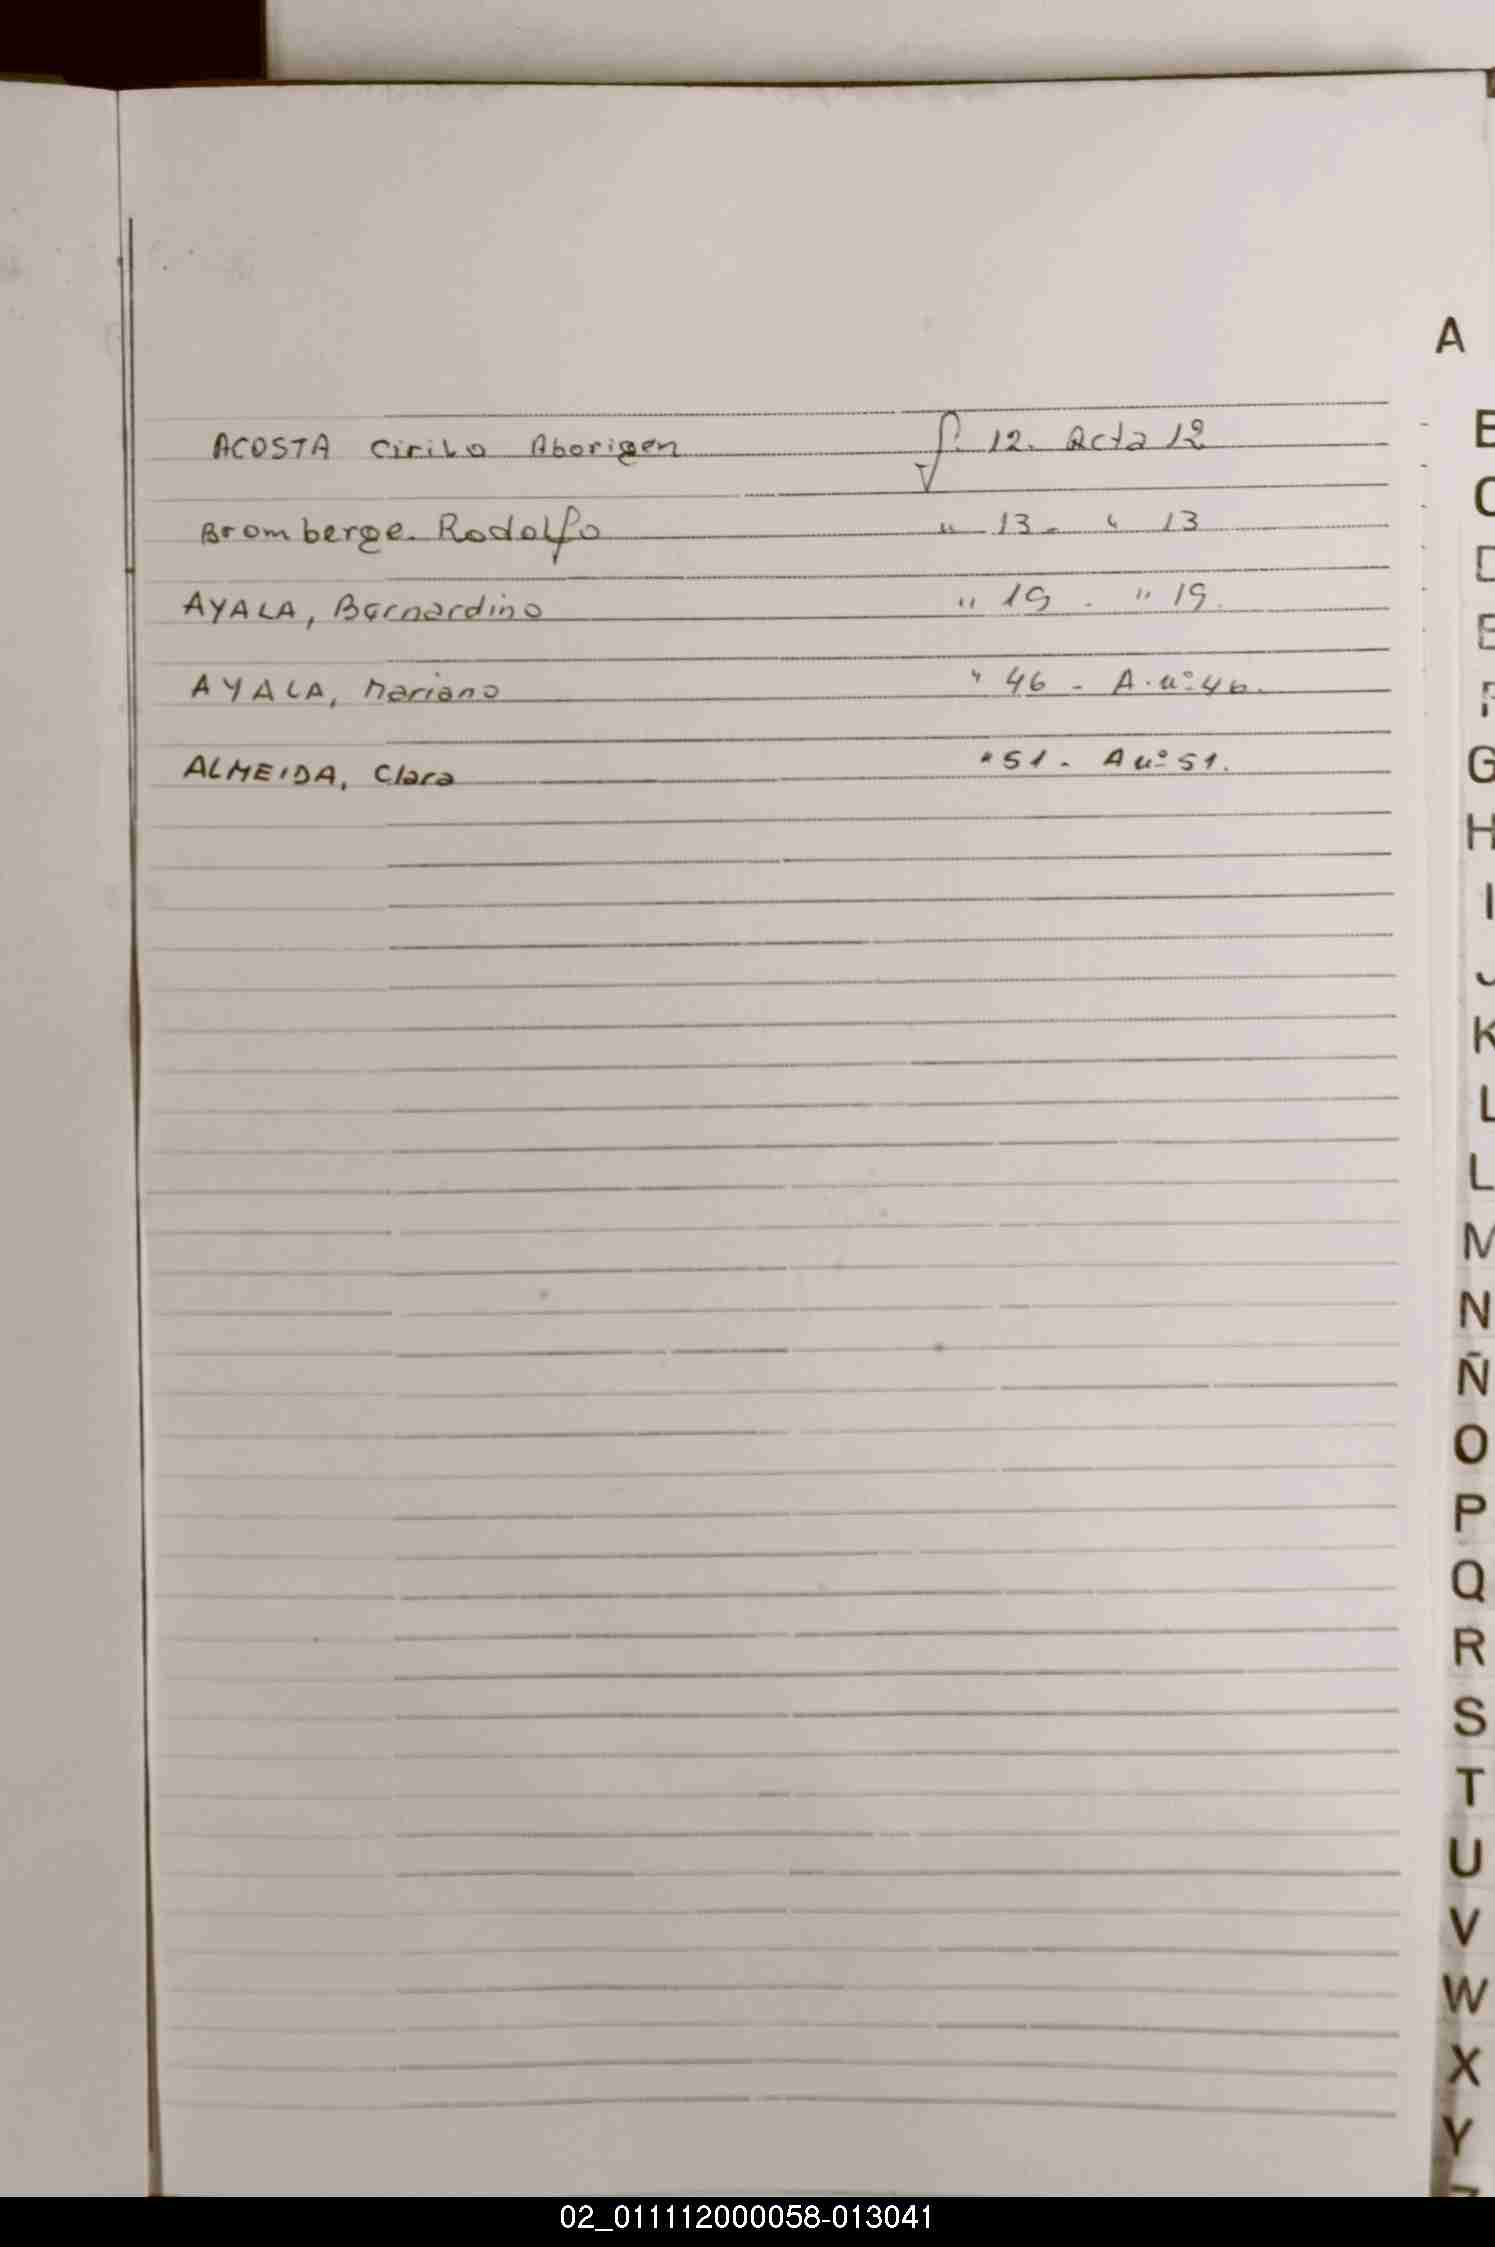 A
ACOSTA Cirilo Aborigen f. 12. Acta 12
Bromberge. Rodolfo " 13 - " 13
AYALA, Bernardino " 19 - " 19.
AYALA, Mariano " 46 - A. nº 46.
ALMEIDA, Clara " 51 - A nº 51.
B
C
D
E
F
G
H
I
J
K
L
L
M
N
Ñ
O
P
Q
R
S
T
U
V
W
X
Y
02_011112000058-013041